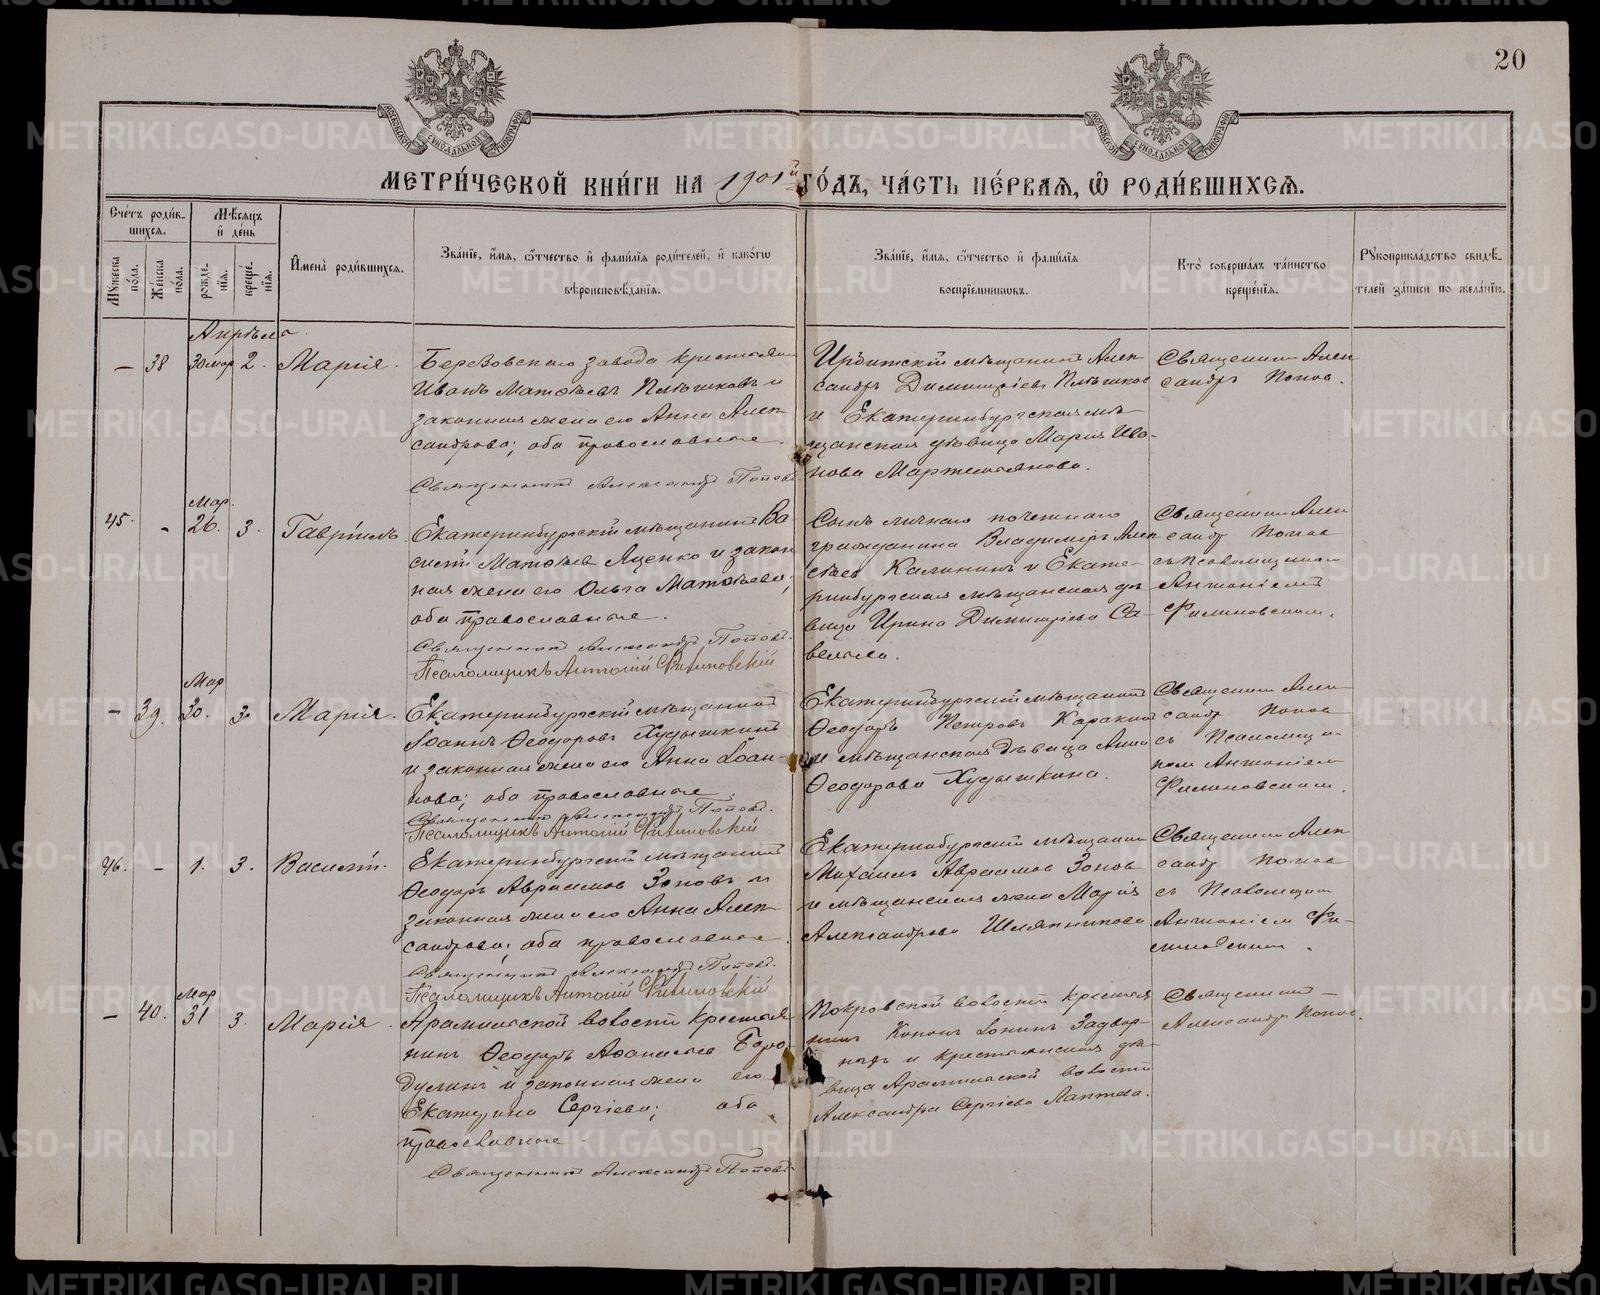 20
МЕТРИ́ЧЕСКОЙ КНИ́ГИ НА 1901й ГО́ДЪ, ЧА́СТЬ ПЕ́РВАѦ, Ѡ҆ РОДИ́ВШИХСѦ.
Сче́тъ роди́в-
шихсѧ.
Мѣ́сѧцъ
и҆ де́нь
Мꙋ́жеска по́ла.
Же́нска по́ла.
рожде́нїѧ.
креще́нїѧ.
И҆мена̀ роди́вшихсѧ.
Зва́нїе, и҆́мѧ, ѻ҆́тчество и҆ фами́лїѧ роди́телей, и҆ како́гѡ
вѣроисповѣ́данїѧ.
Зва́нїе, и҆́мѧ, ѻ҆́тчество и҆ фами́лїѧ
воспрїе́мникѡвъ.
Кто̀ соверша́лъ та́инство
креще́нїѧ.
Рꙋкоприкла́дство свидѣ́-
телей за́писи по жела́нїю.
Апрѣля
— 38 30 мар 2. Марія.
Березовскаго завода крестьянин
Иванъ Матѳѣевъ Плѣшковъ и
законная жена его Анна Алек-
сандрова; оба православные.
Священникъ Александръ Поповъ.
Ирбитскій мѣщанинъ Алек
сандръ Димитріевъ Плѣшков
и Екатеринбургская мѣ-
щанская дѣвица Марія Ива-
нова Мартемьянова.
Священник Алек
сандръ Попов.
45. - Мар. 26. 3. Гавріилъ
Екатеринбургскій мѣщанинъ Ва
силій Матѳѣев Яценко и закон
ная жена его Ольга Матѳѣева;
оба православные.
Священникъ Александръ Поповъ.
Псаломщикъ Антоній Филиновскій
Сынъ личнаго почетнаго
гражданина Владиміръ Алек
сѣев Калининъ и Екате-
ринбургская мѣщанская дѣ-
вица Ирина Димитріева Са-
вельева.
Священник Алек
сандръ Попов
съ Псаломщиком
Антоніемъ
Филиновским.
— 39. Мар 30. 3. Марія.
Екатеринбургскій мѣщанинъ
Іоаннъ Ѳеодоровъ Худышкинъ
и законная жена его Анна Іоан-
нова; оба православные.
Священникъ Александръ Поповъ.
Псаломщикъ Антоній Филиновскій
Екатеринбургскій мѣщанинъ
Ѳеодоръ Петровъ Каракин
и мѣщанская дѣвица Анна
Ѳеодорова Худышкина.
Священник Алек
сандр Попов
съ Псаломщи-
ком Антоніем
Филиновским.
46. - 1. 3. Василій.
Екатеринбургскій мѣщанинъ
Ѳеодоръ Авраамов Зоновъ и
законная жена его Анна Алек
сандрова; оба православные.
Священникъ Александръ Поповъ.
Псаломщикъ Антоній Филиновскій
Екатеринбургскій мѣщанин
Михаилъ Авраамов Зонов
и мѣщанская жена Марія
Александрова Шляпникова
Священник Алек
сандр Попов
съ Псаломщик
Антоніем Фи-
линовским.
— 40. Мар 31 3. Марія.
Арамильской волости крестья
нинъ Ѳеодоръ Аѳанасьев Боро
дулинъ и законная жена его
Екатерина Сергіева; оба
православные.
Священникъ Александръ Поповъ.
Покровской волости крестья
нинъ Кононъ Іонинъ Задвор-
ныхъ и крестьянская дѣ-
вица Арамильской волости
Александра Сергіева Лаптева.
Священник
Александръ Попов.